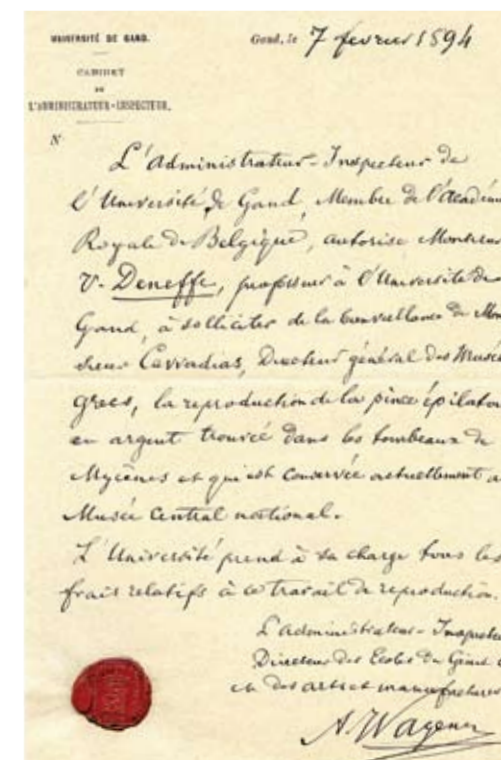 UNIVERSITÉ DE GAND.
Gand, le 7 fevrier 1894
CABINET
DE
L'ADMINISTRATEUR-INSPECTEUR.
N
L'Administrateur-Inspecteur de
l'Université de Gand, Membre de l'Académie
Royale de Belgique, autorise Monsieur
V. Deneffe, professeur à l'Université de
Gand, à solliciter de la bienveillance de Mon
sieur Cavvadias, Directeur général des Musées
grecs, la reproduction de la pince épilatoire
en argent trouvée dans les tombeaux de
Mycènes et qui est conservée actuellement au
Musée Central national.
L'Université prend à sa charge tous les
frais relatifs à ce travail de reproduction.
L'administrateur-Inspecteur
Directeur des Ecoles du Génie Civil
et des arts et manufactures
A. Wagener